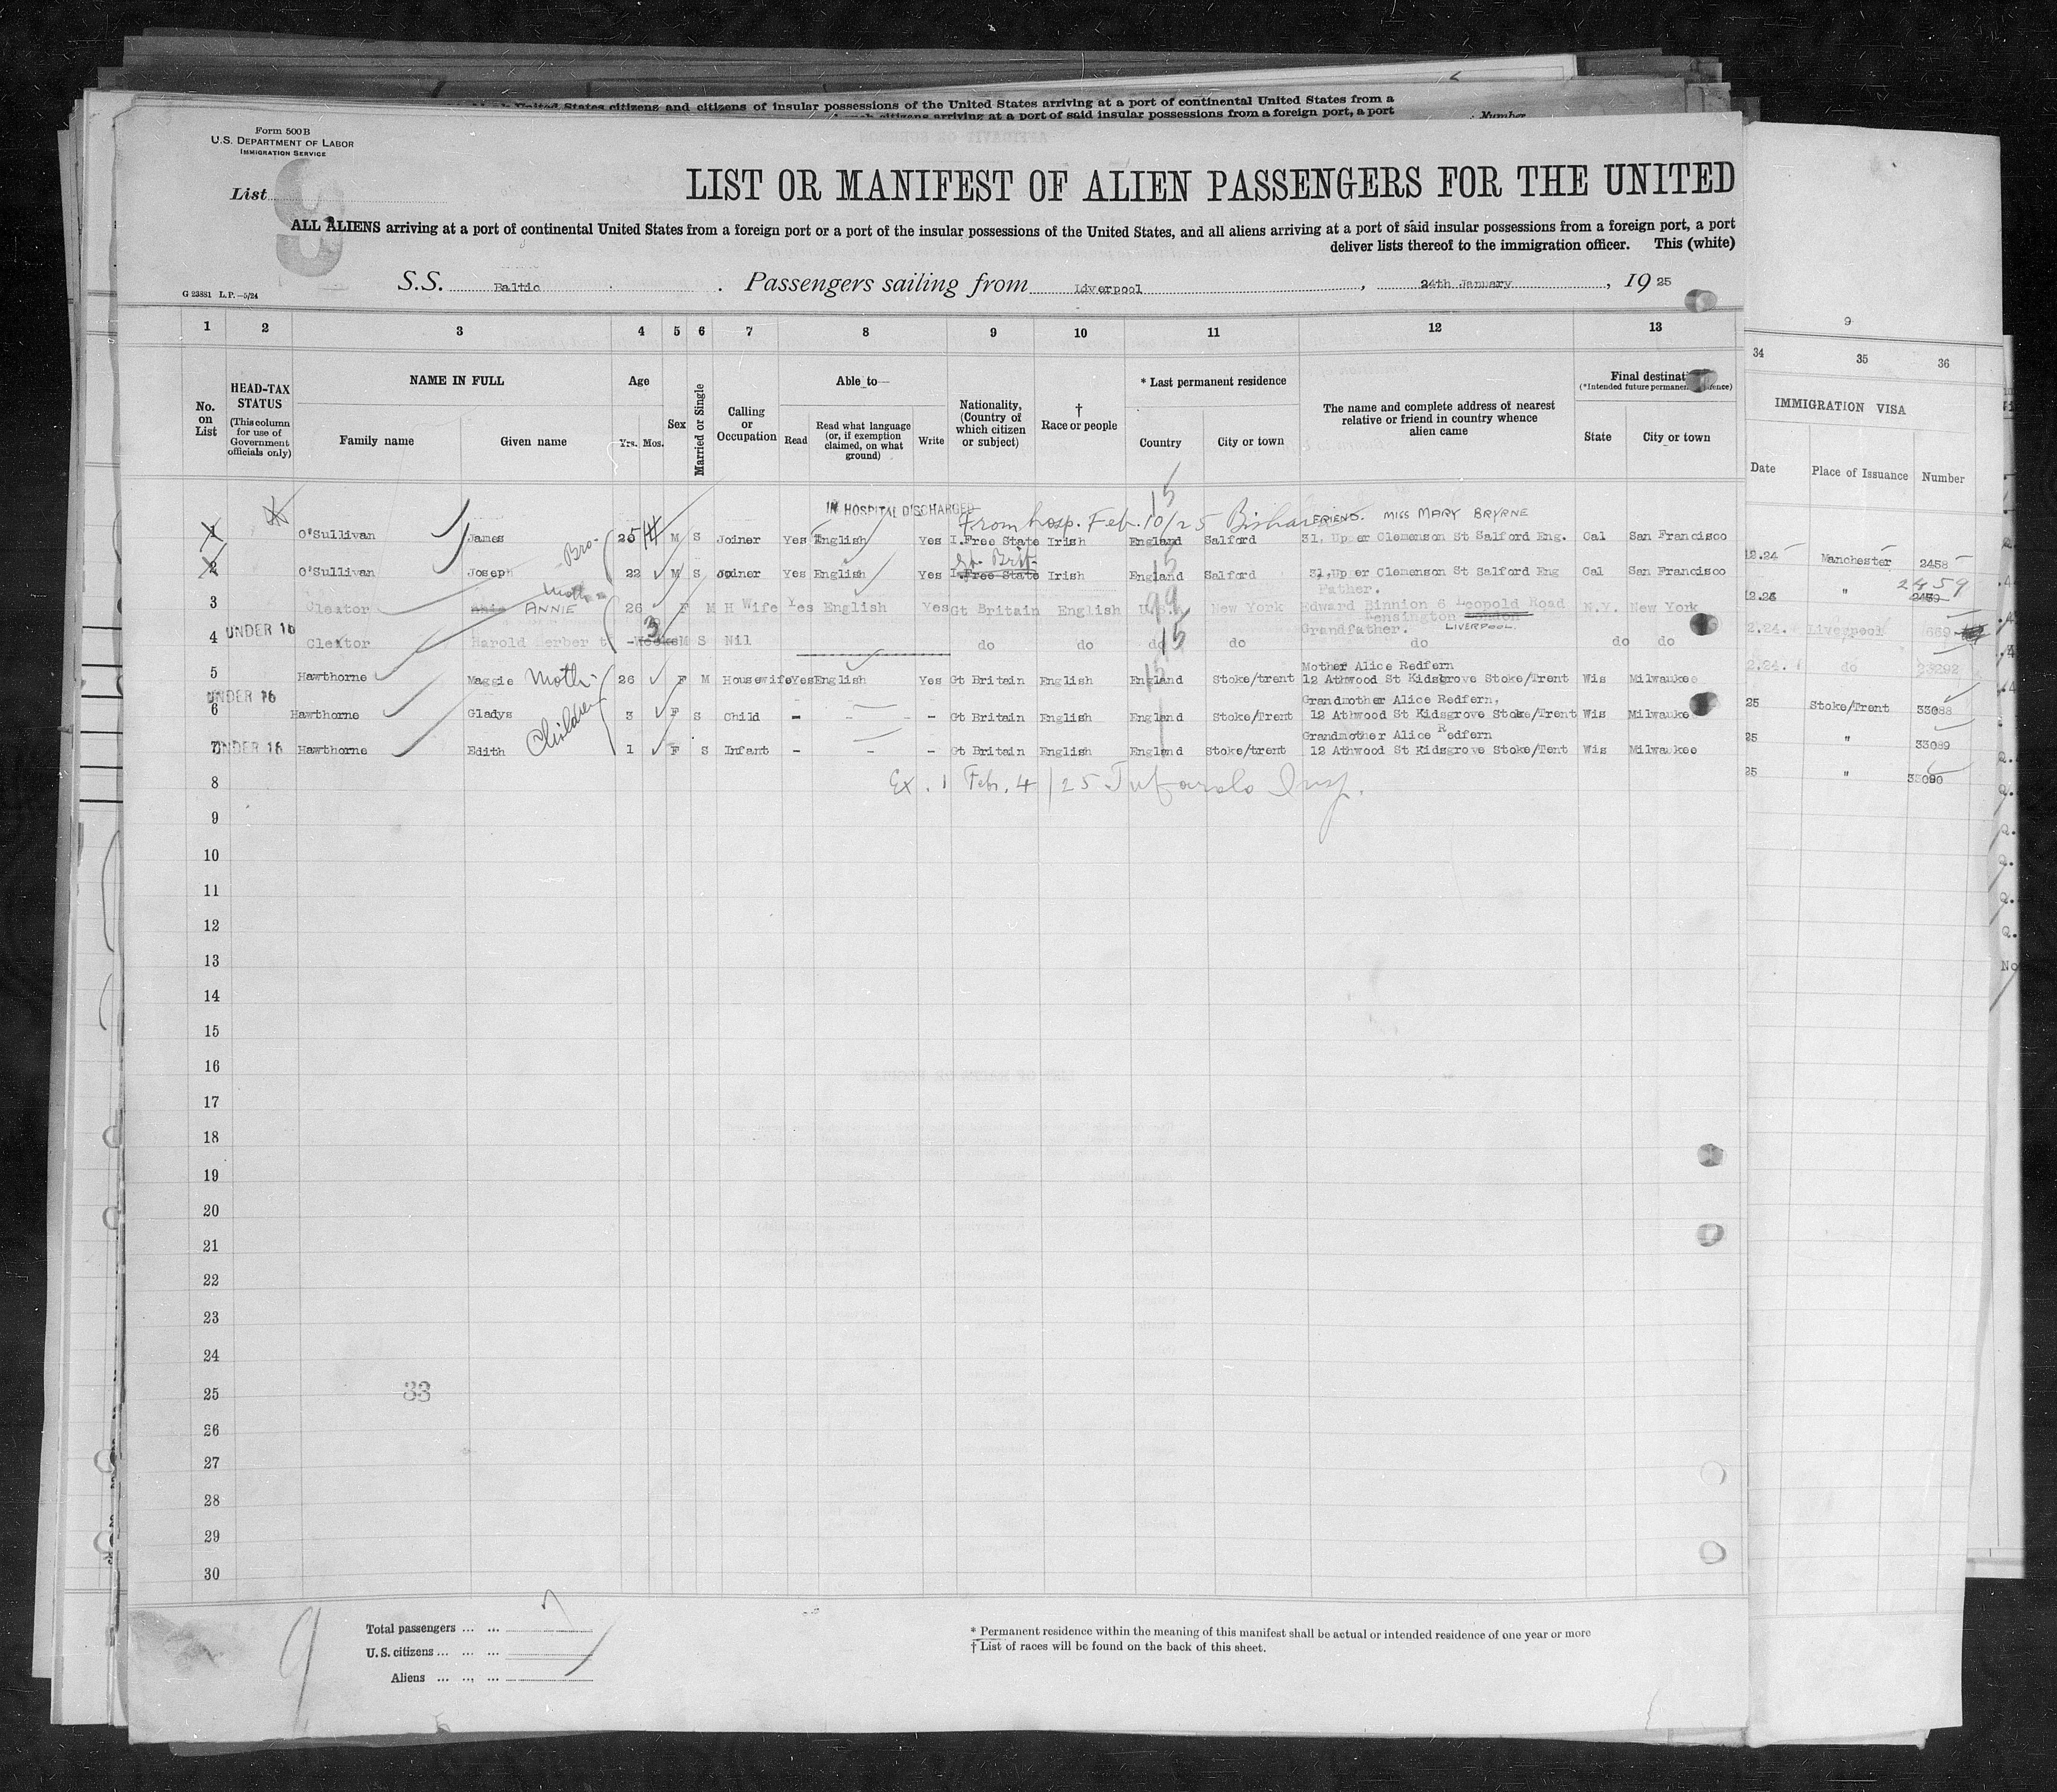 United States citizens and citizens of insular possessions of the United States arriving at a port of continental United States from a
arriving at a port of said insular possessions from a foreign port, a port
Number
Form 500 B
U.S. DEPARTMENT OF LABOR
IMMIGRATION SERVICE
List
LIST OR MANIFEST OF ALIEN PASSENGERS FOR THE UNITED
ALL ALIENS arriving at a port of continental United States from a foreign port or a port of the insular possessions of the United States, and all aliens arriving at a port of said insular possessions from a foreign port, a port
deliver lists thereof to the immigration officer. This (white)
G 23881 L.P.—5/24
S.S. Baltic . Passengers sailing from Liverpool , 24th January , 19 25
1 2 3 4 5 6 7 8 9 10 11 12 13
9
34 35 36
No. on List
HEAD-TAX STATUS (This column for use of Government officials only)
NAME IN FULL
Family name Given name
Age
Yrs. Mos.
Sex
Married or Single
Calling or Occupation
Able to—
Read Read what language (or, if exemption claimed, on what ground) Write
Nationality, (Country of which citizen or subject)
† Race or people
* Last permanent residence
Country City or town
The name and complete address of nearest relative or friend in country whence alien came
Final destination (*Intended future permanent residence)
State City or town
IMMIGRATION VISA
Date Place of Issuance Number
IN HOSPITAL DISCHARGED
From hosp. Feb. 10/25 15
FRIEND. MISS MARY BRYRNE
1 O'Sullivan James 25 M S Joiner Yes English Yes I.Free State Irish England Salford 31, Upper Clemenson St Salford Eng. Cal San Francisco
12.24 Manchester 2458
Bro-
Gt. Brit- 15
2 O'Sullivan Joseph 22 M S Joiner Yes English Yes I.Free State Irish England Salford 31,Upper Clemenson St Salford Eng Cal San Francisco
2459
12.24 " 2459
Mother
Father.
3 Cleator ANNIE 26 F M H Wife Yes English Yes Gt Britain English U.S. 99 New York Edward Binnion 6 Leopold Road N.Y. New York
Kensington London
LIVERPOOL.
2.24. Liverpool 669
UNDER 16
Grandfather.
4 Cleator Harold Herbert - 3 Weeks M S Nil do do do 15 do do do do
2.24. do 33292
Mother Alice Redfern
5 Hawthorne Maggie Moth- 26 F M Housewife Yes English Yes Gt Britain English England Stoke/trent 12 Athwood St Kidsgrove Stoke/Trent Wis Milwaukee
25 Stoke/Trent 33088
UNDER 16
Grandmother Alice Redfern,
6 Hawthorne Gladys Children 3 F S Child - - - Gt Britain English England Stoke/Trent 12 Athwood St Kidsgrove Stoke/Trent Wis Milwauke
25 " 33089
Grandmother Alice Redfern
7 UNDER 16 Hawthorne Edith 1 F S Infant - - - Gt Britain English England Stoke/trent 12 Athwood St Kidsgrove Stoke/Tent Wis Milwaukee
25 " 33090
8 Ex. 1 Feb. 4/25 Insp.
9
10
11
12
13
14
15
16
17
18
19
20
21
22
23
24
25 33
26
27
28
29
30
9
Total passengers ... ... 7
U.S. citizens ... ... ...
Aliens ... ... ...
* Permanent residence within the meaning of this manifest shall be actual or intended residence of one year or more
† List of races will be found on the back of this sheet.